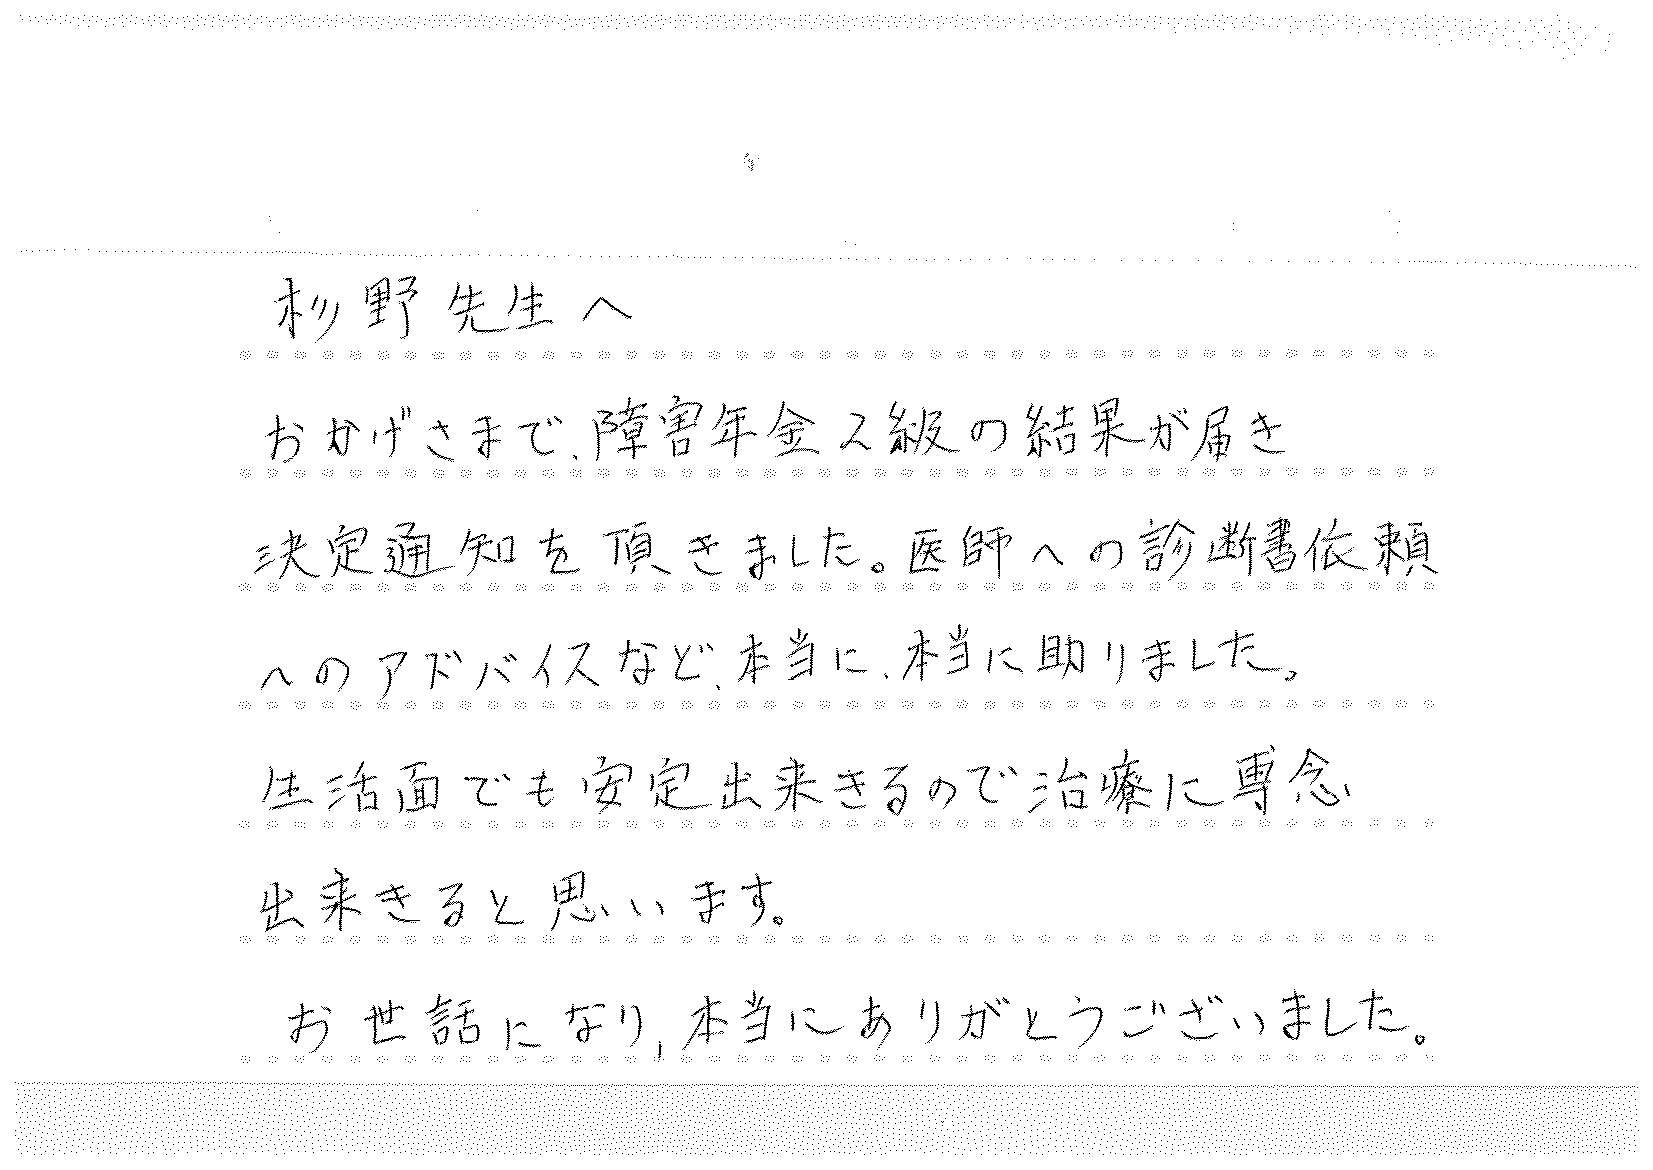 杉野先生へ
おかげさまで、障害年金2級の結果が届き
決定通知を頂きました。医師への診断書依頼
へのアドバイスなど、本当に、本当に助りました。
生活面でも安定出来きるので治療に専念
出来きると思います。
お世話になり、本当にありがとうございました。